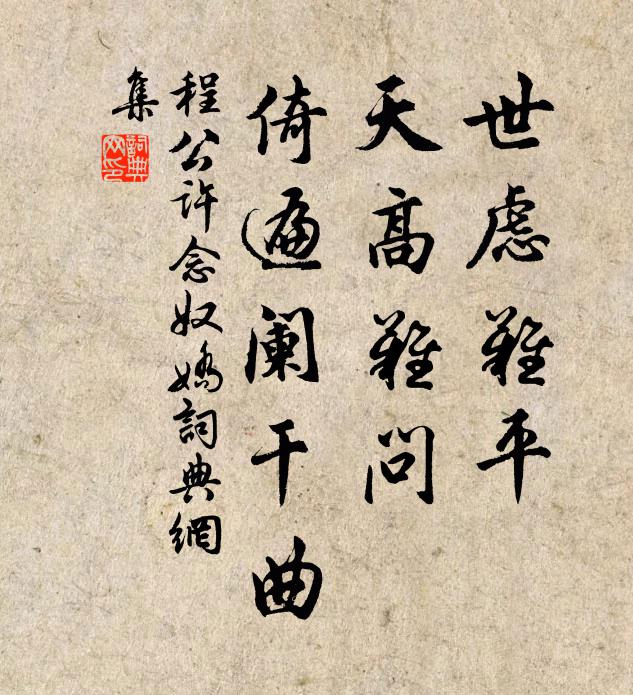 世慮難平
天高難問
倚遍闌干曲
程公許念奴嬌詞典網
集
詞典
网印